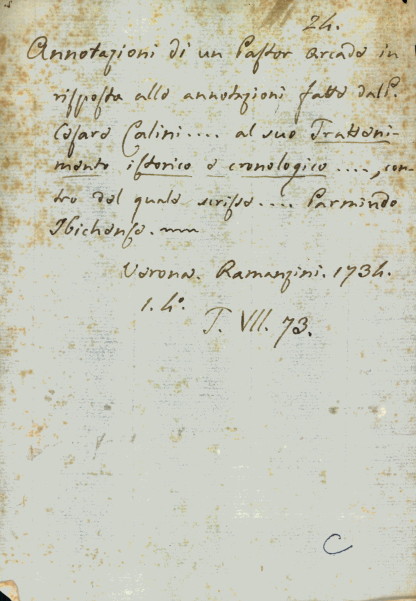 24.
Annotazioni di un Pastor Arcade in
risposta alle annotazioni fatte dal P.
Cesare Calini.... al suo Tratteni-
mento istorico e cronologico...., con-
tro del quale scrisse.... Parmindo
Ibichense.
Verona. Ramanzini. 1734.
1. 4°.
T. VII. 73.
C